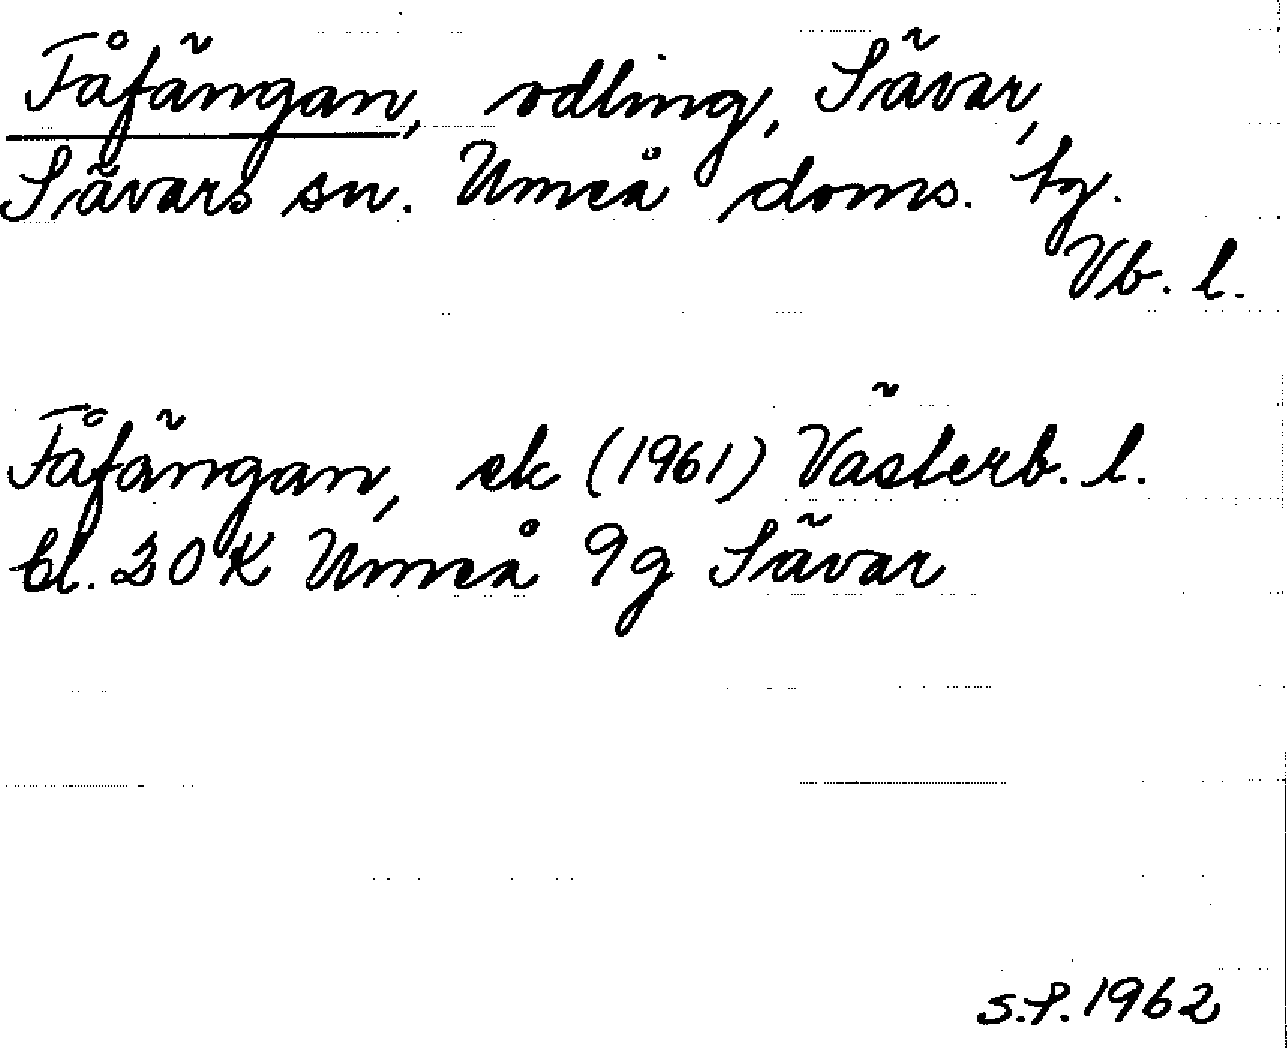 Fåfängan, odling, Sävar,
Sävars sn. Umeå doms. tg.
Vb. l.
Fåfängan, ek (1961) Västerb. l.
bl. 20 K Umeå 9g Sävar
S.F. 1962